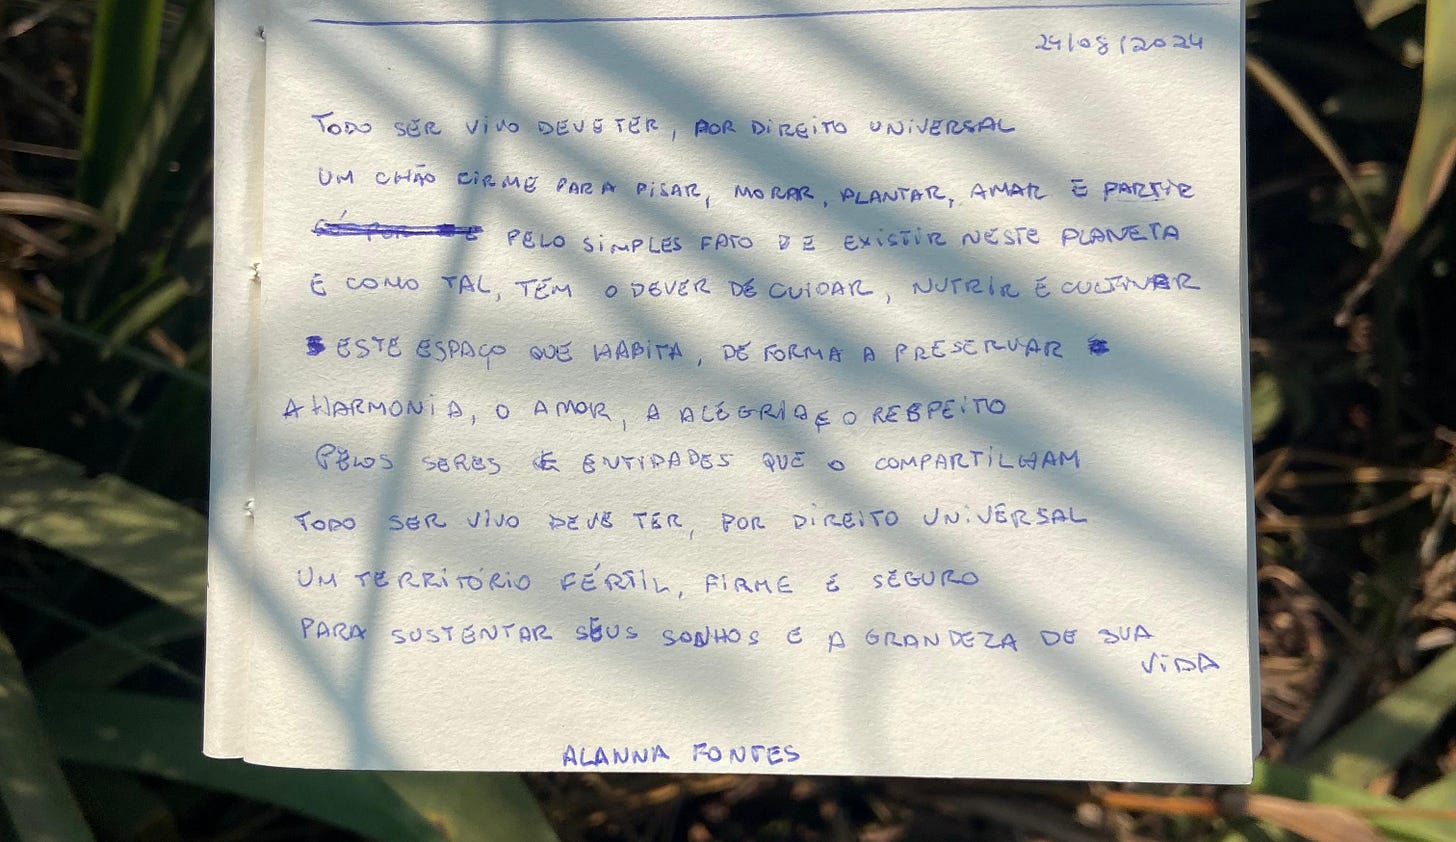 24/08/2024
TODO SER VIVO DEVE TER, POR DIREITO UNIVERSAL
UM CHÃO FIRME PARA PISAR, MORAR, PLANTAR, AMAR E PARTIR
PELO SIMPLES FATO DE EXISTIR NESTE PLANETA
E COMO TAL, TEM O DEVER DE CUIDAR, NUTRIR E CULTIVAR
ESTE ESPAÇO QUE HABITA, DE FORMA A PRESERVAR
A HARMONIA, O AMOR, A ALEGRIA E O RESPEITO
PELOS SERES E ENTIDADES QUE O COMPARTILHAM
TODO SER VIVO DEVE TER, POR DIREITO UNIVERSAL
UM TERRITÓRIO FÉRTIL, FIRME E SEGURO
PARA SUSTENTAR SEUS SONHOS E A GRANDEZA DE SUA
VIDA
ALANNA FONTES